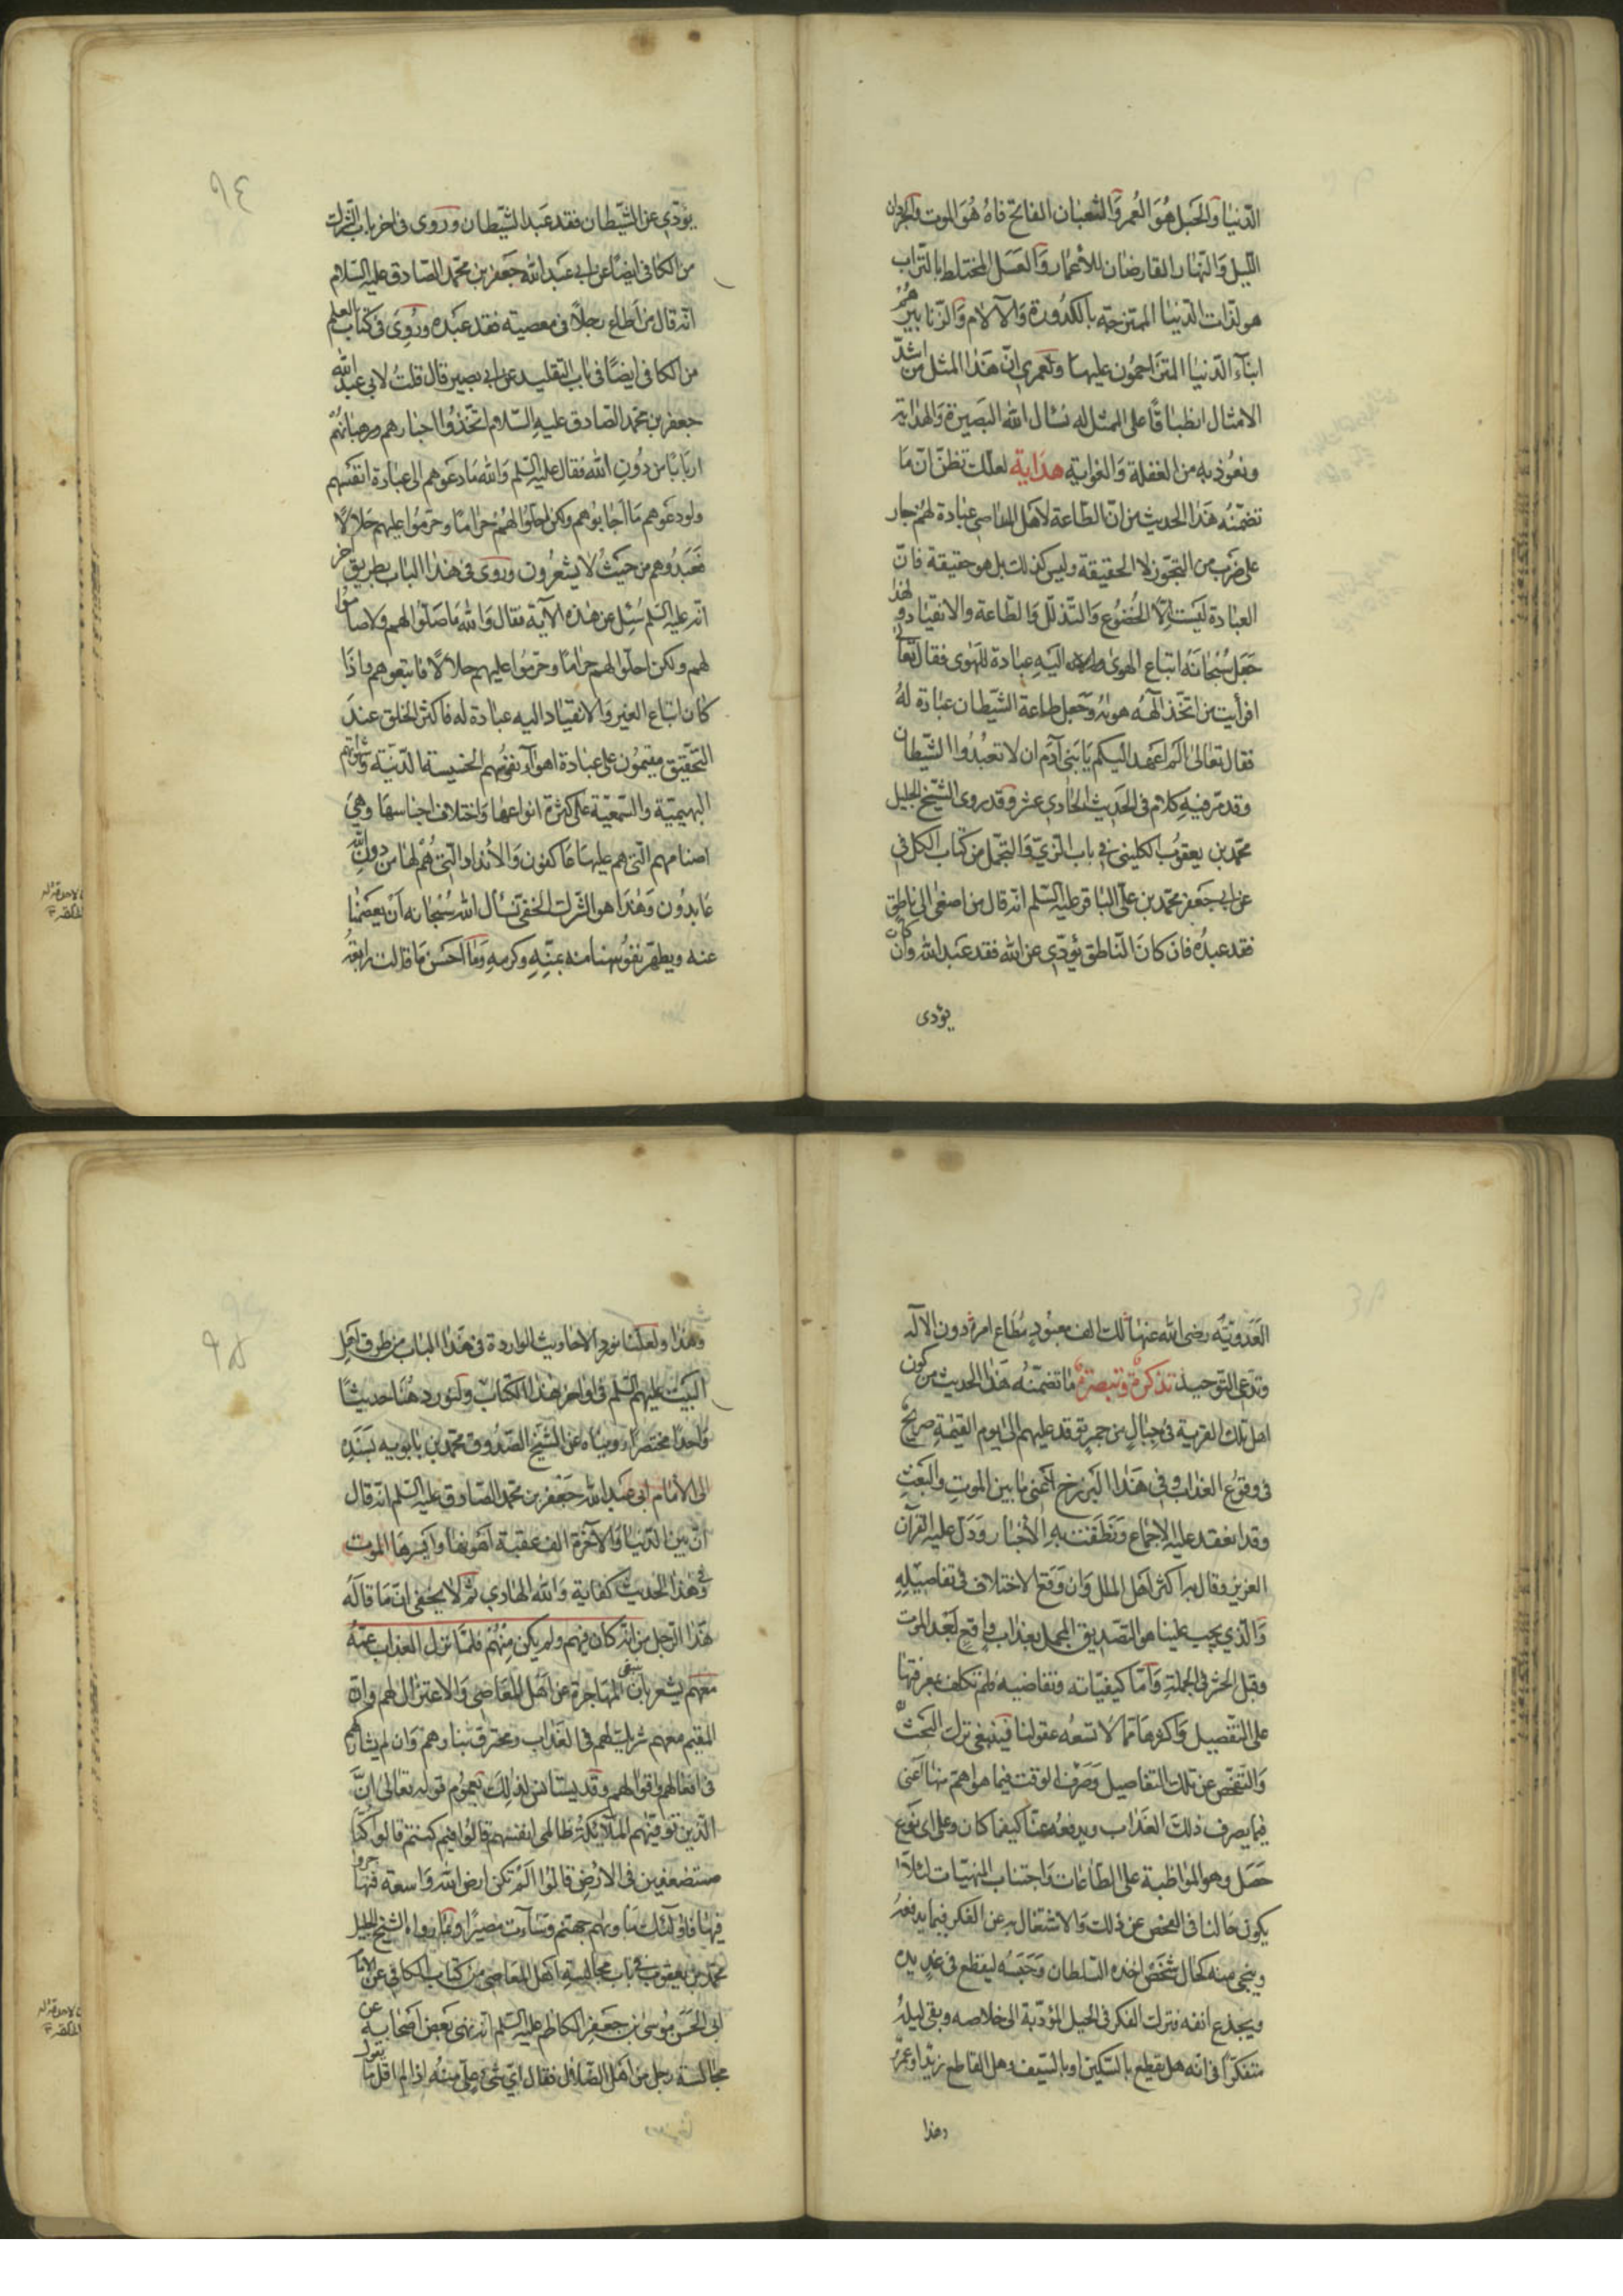 الدّنيا والحَبل هُوَ العُمر وَالثعبان الفاتح فاهُ هُوَ الموت والجرذان
الليل وَالنّهار القارضان للأعمار وَالعَسَل المختلط بالتراب
هو لذّات الدّنيا الممتزجة بالكدُورة وَالآلام وَالزنابير هُمْ
ابنآء الدّنيا المتزاحمُون عليهـا ولعمري انّ هَذا المثل من اشدّ
الامثال انطباقًا على الممثل له نسأل الله البَصيرة وَالهداية
ونعُوذ به من الغفلة وَالغواية هداية لعلك تظنّ انّ مَا
تضمّنهُ هَذا الحديث من انّ الطّاعة لاهل المعاصي عبادة لهُم جار
على ضرَب من التجوّز لا الحقيقة وليس كذلك بل هو حقيقة فانّ
العبادة ليسَت الّا الخُضوُع وَالتّذلّل وَالطّاعة والانقياد ولهذا
جَعل سُبْحانَهُ اتباع الهوى والانقياد اليَهِ عبادة للهَوى فقال تعالى
افرأيت من اتّخذ آلهه هوٰيه وَجعَل طاعة الشّيطان عبادة لهُ
فقال تعالى الم اعَهد اليكم يَا بَنى آدَم ان لا تعبُدُوا الشّيطان
وقد مرّ فيهِ كلام فى الحَديث الحادى عشر وقد روى الشّيخ الجليل
محمّد بن يعقوُب الكليني في باب الزيّ وَالتجمّل من كتاب الكافي
عن ابى جعفر محمّد بن عَلى البَاقر عليه السّلم انّه قال من اصغى الى ناطق
فقد عبدُه فان كانَ النّاطق يُؤدّي عن الله فقد عَبد الله وان كان
يؤدى
٩٤
يؤدّي عن الشّيَطان فقد عَبد الشّيَطان وروى فى اخر باب الشّرك
من الكافي ايضًا عن ابي عَبد الله جَعفر بن محمّد الصّادق عليه السّلام
انّه قال من اَطاع رجلًا فى معصية فقد عَبَده وروِىَ فى كتاب العلم
من الكافى ايضًا فى باب التقليد عن ابي بصير قال قلتُ لابى عبد الله
جعفر بن محمّد الصّادق عليهِ السّلام اتّخذوُا احبارهم ورهبانهُمْ
اربابًا من دُونِ الله فقال عليهِ السّلم وَالله مَا دعَوهم الى عبادة انفسَهم
ولو دعَوهم مَا اجَابوُهم ولكن احَلّوا لهُمْ حرَامًا وحرّموُا عليهم حَلالًا
فَعَبَدوُهم من حَيثُ لا يشعرُون وروى فى هَذا الباب بطريق اخر
انّه عليهِ السّلم سُئِل عن هٰذهِ الآية فقال وَالله مَا صَلّوُا لهم ولا صامُوُا
لهم ولكن احَلّوا لهم حرامًا وحرّموُا عليهم حلالًا فاتبعوهم واذَا
كان اتباع الغير وَالانقياد اليه عبادة له فاكثر الخلق عندَ
التحّقيق مقيمُون على عبَادة اهوآء نفوُسهم الخسيسة الدّنيّة وشهواتهم
البهيميّة والسّبعيّة على كثرة انواعهَا وَاختلاف اجناسهَا وهيَ
اصنامهم الّتى هم عليهَا عَاكفون وَالأنداد الّتى هُمْ لهَا من دونِ اللّه
عَابدُون وَهٰذَا هو الشّرك الخفّي نسأل الله سُبْحانه اَن يعَصمنا
عنه ويطهّر نفُوُسنا منه بمنّهِ وكرمِهِ وَما احَسَن مَا قالت رابعَة
العَدَويّة رضى الله عنهَا لك الف معبوُدٍ مُطَاع امرهُ دون الآله
وتدّعى التّوحيد تذكرةٌ وتبصرةٌ مَا تضمّنهُ هَذا الحديث من كون
اهل تلك القرية فى جبَالٍ من جمر توقد عليهم الى يوم القيٰمةِ صريحٌ
فى وقوُع العذاب في هَذا البَرزخ اَعنى مَا بين الموتِ وَالبَعْثِ
وقد انعقد عليه الاجماع وَنطَقت بهِ الأخبار وَدَلّ عليه القرآن
العزيز وقال به اكثر اهَل الملل وَان وَقعَ الاختلاف فى تفاصيلِهِ
وَالّذي يجب علينا هو التّصديق المجمل بعذاب واقع بَعد الموت
وقبل الحَشر فى الجُملة وَامّا كيفيّاته وتفاصيله فلم نكلف بمعرفتهَا
على التّفصيل وَاكثرهَا ممّا لا تسعُه عقولنا فيَنبغى ترك البَحث
وَالتّفحّص عن تلك التفاصيل وَصَرف الوقت فيما هوَ اهَمّ منها اَعنى
فيما يصرف ذلك العَذاب ويدفعُه عنّا كيفَما كان وعلى اى نوَع
حَصَل وهو المواظبة على الطّاعات وَاجتناب المنهيّات لئلّا
يكون حَالنا فى الفحص عن ذلك وَالاشتغال بهِ عن الفكر فيما يدفعهُ
وينجى منه كحال شخَصٍ اخذه السّلطان وَحَبَسَهُ ليقطع فى غدٍ يده
ويجذع انفه فترك الفكر فى الحيل المؤدّية الى خلاصه وبقى ليلهُ
متفكّرًا فى انّه هل يقطع بالسّكين او بالسّيف وهل القاطع زيد او عمرو
وهذا
٩٥
وهٰذا ولعلّنا نورد الاحاديث الواردة فى هَذا الباب من طرق اَهل
البَيْت عليهم السّلم فى اواخر هٰذا الكتابِ ولنورد هُنا حديثًا
وَاحدًا مختصَرًا رويناه عن الشّيخ الصّدوُق محمّد بن بابويه بسَنَدِهِ
الى الامام ابى عبَد الله جَعْفر بن محمّد الصّادق عليهِ السّلم انّه قال
انّ بين الدّنيا وَالآخرة الف عقبة اَهْونها وَايسَرهَا الموت
وفي هٰذا الحَديث كفاية وَالله الهادي ثم لا يخفى انّ مَا قالَهُ
هٰذا الرّجل من انّه كان فيهم ولم يكن منهُمْ فلمّا نزل العذاب عمّهُ
معَهم يشعر بانّه ينبغى المهَاجرة عن اهَل المعَاصى وَالاعتزال لهم وانّ
المقيم معهم شريك لهم فى العَذاب ومحترق بنارهم وَان لم يشاركهم
فى افعالهم واقوالهم وقد يستأنس لذلِكَ بعموُم قوله تعالى انَّ
الّذين توفّيهم الملآئكةُ ظالمى انفسهم قالوُا فيم كنتم قالوا كنّا
مستضعَفين فى الارض قالوُا الَمْ تكن ارضُ الله وَاسعة فتهاجروا
فيها فاوُلٰئك مَأويٰهم جهنّم وسَآءت مصيرًا وبما رواه الشيخ الجليل
محمّد بن يعقوب في باب مجالسةِ اَهل المعاصى من كتاب الكافي عن الامام
ابى الحَسَن موُسى بن جَعفرٍ الكاظم عليهِ السّلم انّه نهى بعَض اَصحَابهِ عن
مجالسة رجل من اهَل الضّلال فقال اي شىء علىّ منهُ اذا لم اقل ما يقول